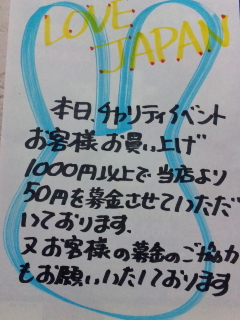 LOVE
JAPAN
本日、チャリティイベント
お客様お買い上げ
1000円以上で当店より
50円を募金させていただ
いております。
又お客様の募金のご協力
もお願いいたしております